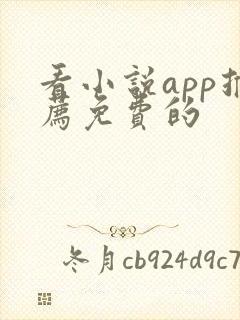 看小说app推
薦免費的
冬月cb924d9c7